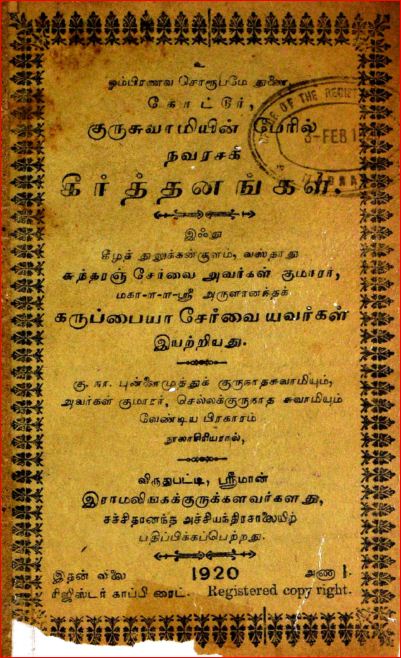 உ
ஓம்பிரணவ சொரூபமே துணை,
கோட்டூர்,
குருசுவாமியின் மேரில்
நவரசக்
கீர்த்தனங்கள்.
இஃது
கீழத் துலுக்கன்குளம், வஸ்தாது
சுந்தரஞ் சேர்வை அவர்கள் குமாரர்,
மகா-ா-ா-ஸ்ரீ அருளானந்தக்
கருப்பையா சேர்வை யவர்கள்
இயற்றியது.
கு. நா. புன்னைமுத்துக் குருநாதசுவாமியும்,
அவர்கள் குமாரர், செல்லக்குருநாத சுவாமியும்
வேண்டிய பிரகாரம்
விருதுபட்டி, ஸ்ரீமான்
இராமலிங்கக்குருக்களவர்களது,
சச்சிதானந்த அச்சியந்திரசாலையிற்
பதிப்பிக்கப்பெற்றது.
இதன் விலை 1920 அணா
ரிஜிஸ்டர் காப்பி ரைட். Registered copy right.
OF THE REGIST
3-FEB 1